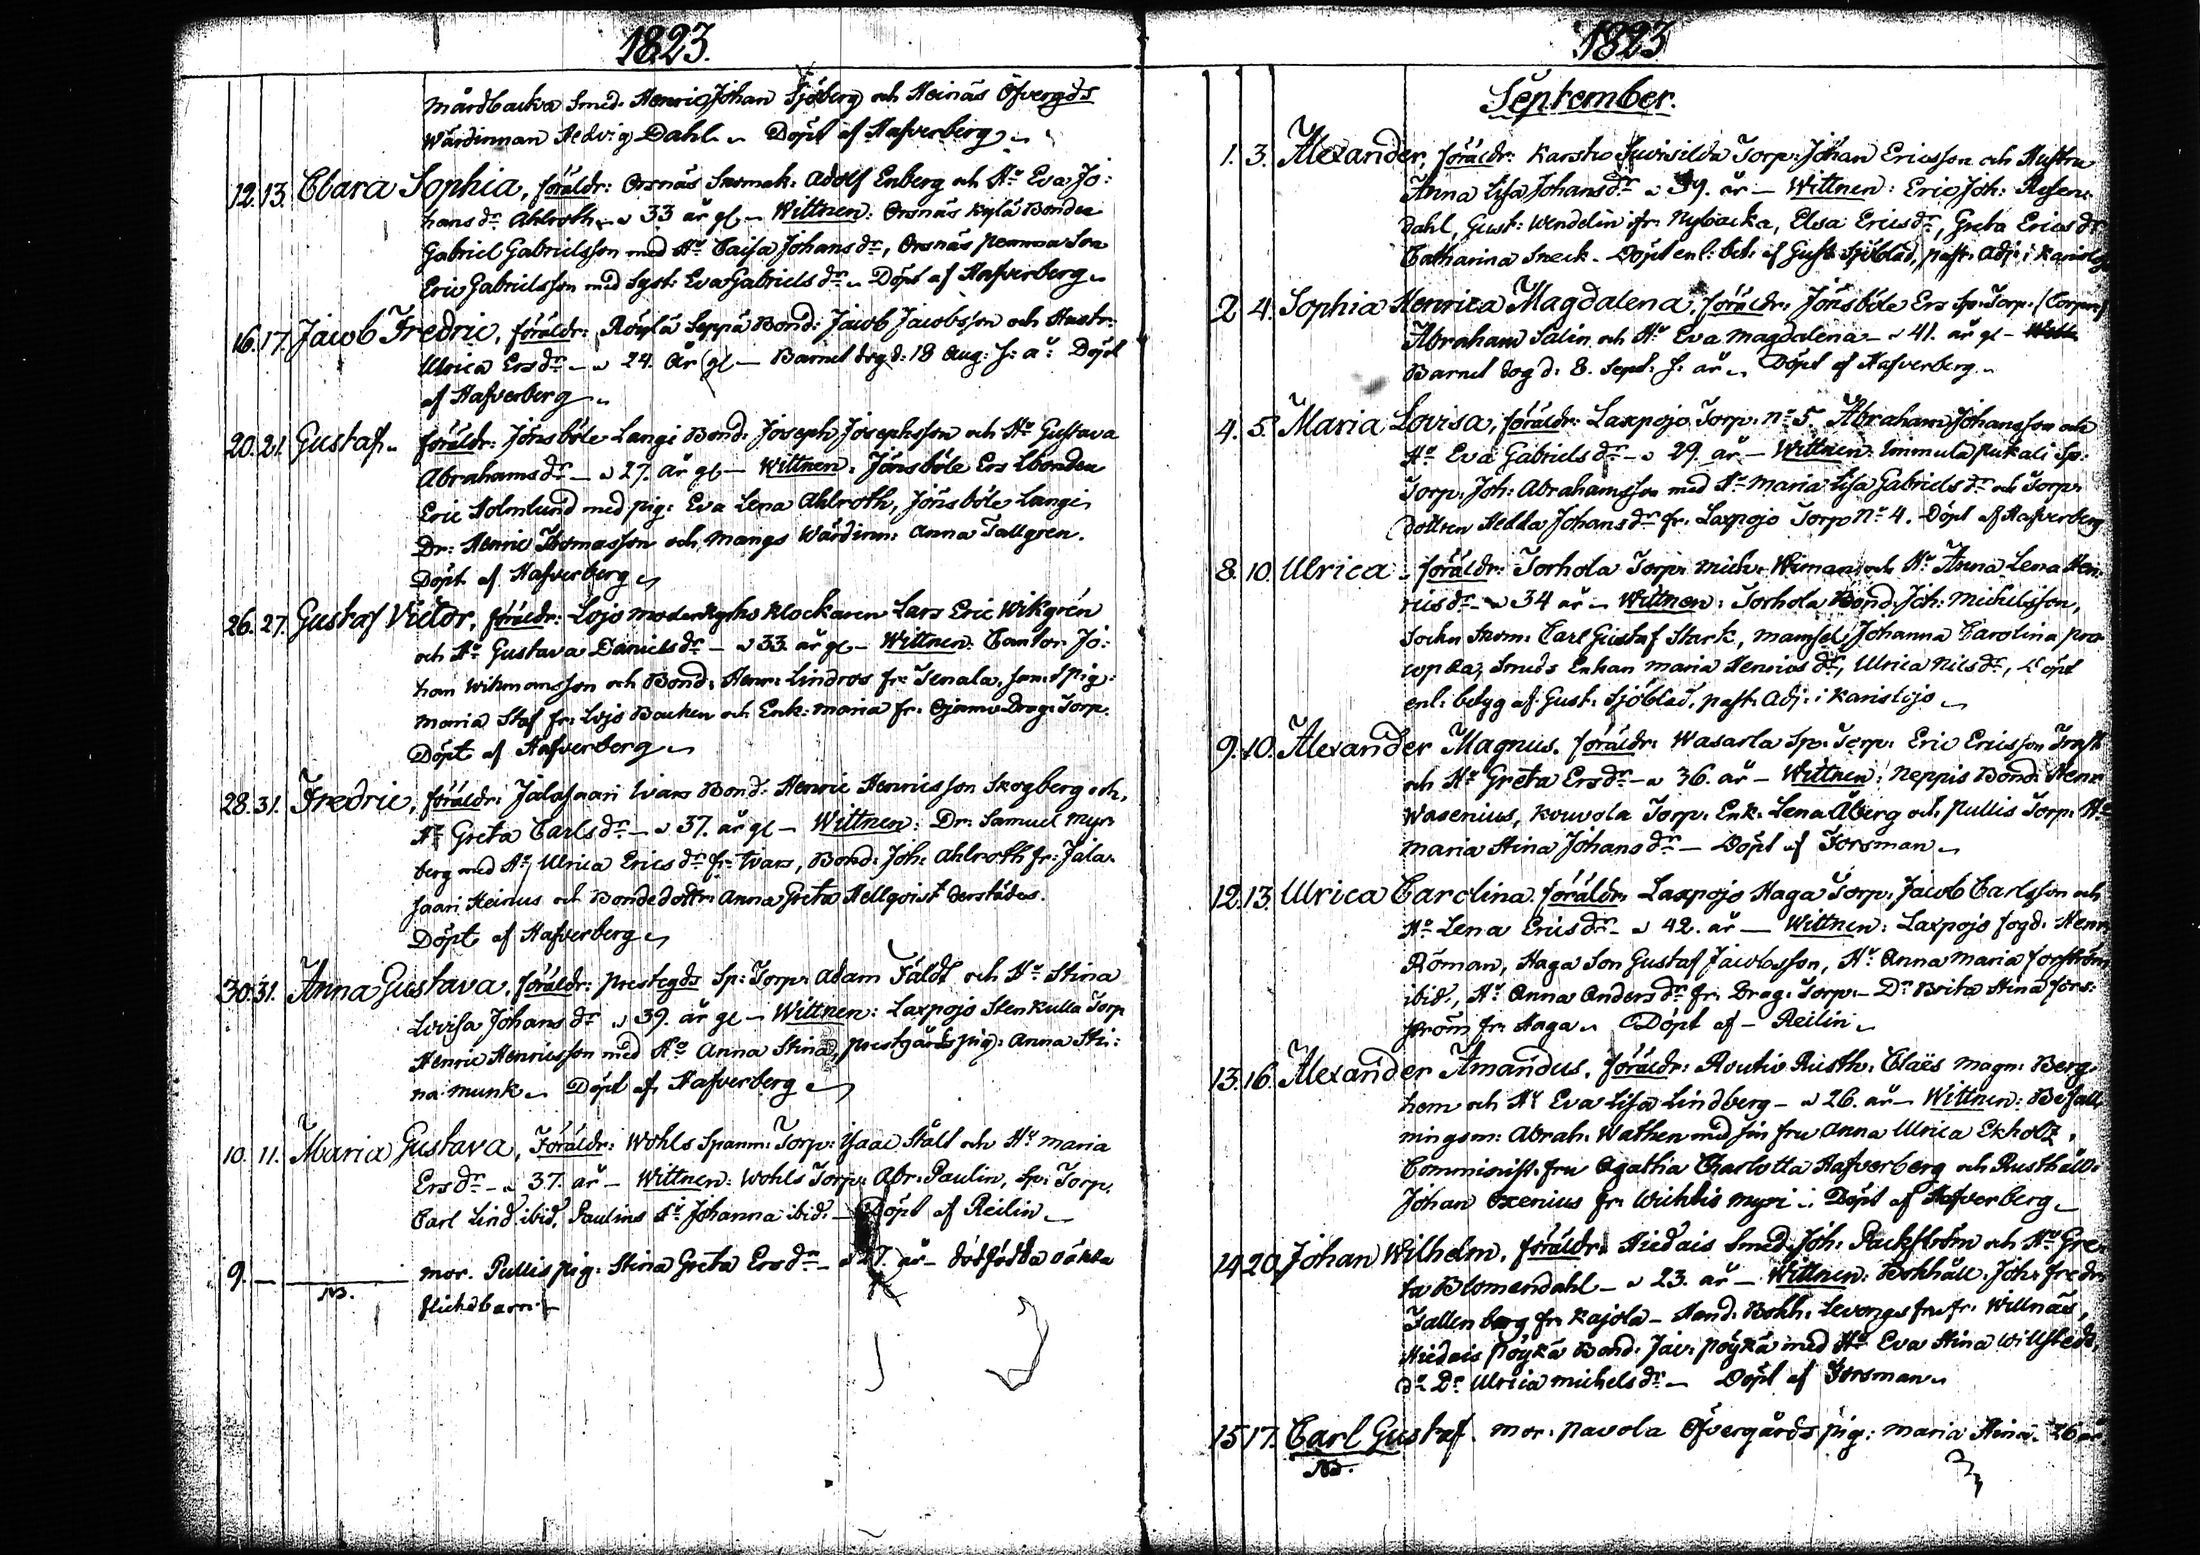 1823.
Mårdbacka Smed. Henric Johan Sjöberg och Heinäs Öfvergds
Wärdinnan Hedvig Dahl. Döpt af Hafverberg
12. 13. Clara Sophia, föräldr: Orsnäs Adolf Enberg och Hu Eva Jo:
hans dr Ahlroth 33 år gl. Wittnen: Orsnäs Kylä Bonden
Gabriel Gabrielsson med Hu Caisa Johans dr, Orsnäs Son
Eric Gabrielsson med Syst: Eva Gabriels dr. Döpt af Hafverberg
16. 17. Jacob Fredric, föräldr: Röylä Seppä Bond: Jacob Jacobsson och Hustr:
Ulrica Ers dr 24. år gl — Barnet dog d: 18 Aug: s: å: Döpt
af Hafverberg
20. 21. Gustaf. föräldr: Jönsböle Langi Bond: Joseph Josephsson och Hu Gustava
Abrahams dr — 27. år gl — Wittnen: Jönsböle Ers Bonden
Eric Holmlund med pig: Eva Lena Ahlroth, Jönsböle Langi
Dr: Henric Thomasson och Mangs Wärdinn: Anna Tallgren.
Döpt af Hafverberg
26. 27. Gustaf Victor, föräldr: Lojo moderkyrko Klockaren Lars Eric Wikgrén
och Hu Gustava Daniels dr — 33. år gl — Wittnen: Cantor Jo:
han Wikmansson och Bond: Henr: Lindros fr: Tenala, samt pig:
Maria Staf fr: Lojo Backen och Enk: Maria fr: Ojamo Drag: Torp.
Döpt af Hafverberg
28. 31. Fredric, föräldr: Jalasaari Ivars Bond: Henric Henricsson Skogberg och,
Hu Greta Carls dr — 37. år gl — Wittnen: Dr: Samuel Myr:
berg med Hu Ulrica Erics dr fr: Ivars, Bond: Joh: Ahlroth fr: Jala:
saari Heinus och Bondedottr: Anna Greta Hellqvist derstädes.
Döpt af Hafverberg
30. 31. Anna Gustava, föräldr: Prestegds Sp: Torp: Adam Fäldt och Hu Stina
Lovisa Johans dr 39. år gl — Wittnen: Laxpojo Stenkulla Torp
Henric Henricsson med Hu Anna Stina, prestgårds pig: Anna Sti:
na Munk. Döpt af Hafverberg
10. 11. Maria Gustava, Föräldr: Wohls Spanm: Torp: Isaac Ståll och Hu Maria
Ers dr — 37. år — Wittnen: Wohls Torp: Abr: Paulin, Sp: Torp.
Carl Lind ibid, Paulins Hu Johanna ibid. — Döpt af Reilin
9. — NB. mor. Pullis pig: Stina Greta Ers dr — 27. år — dödfödda oäkta
flickebarn
1823
September.
1. 3. Alexander, föräldr: Karstu Suvisilda Torp: Johan Ericsson och Hustru
Anna Lisa Johans dr 39. år — Wittnen: Eric Joh: Rosen:
dahl, Gust: Wendelin fr: Nybacka, Elsa Erics dr, Greta Erics dr
Catharina Sneck. Döpt enl: bet: af Gust: Sjöblad, past: Adj: i Karislojo
2 4. Sophia Henrica Magdalena, föräldr: Jönsböle Ers Sp: Torp: (Corpor:)
Abraham Salin och Hu Eva Magdalena — 41. år gl —
Barnet dog d: 8. Sept: s: år. Döpt af Hafverberg
4. 5. Maria Lovisa, föräldr: Laxpojo Torp: No 5. Abraham Johansson och
Hu Eva Gabriels dr — 29. år — Wittnen: Immula Pukali Sp:
Torp: Joh: Abrahamsson med Hu Maria Lisa Gabriels dr och Torp:
dottren Hedda Johans dr fr: Laxpojo Torp No 4. Döpt af Hafverberg
8. 10. Ulrica. föräldr: Torhola Torp: Mich: Wiman och Hu Anna Lena Hen:
rics dr 34 år — Wittnen: Torhola Bond: Joh: Michelsson,
Sockn Skom: Carl Gustaf Stark, Mamsel Johanna Carolina Pro:
copæa, Smeds Enkan Maria Henrics dr, Ulrica Nils dr, Döpt
enl: betyg af Gust: Sjöblad, past: Adj: i Karislojo
9. 10. Alexander Magnus. föräldr: Wasarla Sp: Torp: Eric Ericsson Frost
och Hu Greta Ers dr — 36. år — Wittnen: Neppis Bond: Henr:
Wasenius, Kouvola Torp: Enk: Lena Åberg och Pullis Torp: Hu
Maria Stina Johans dr — Döpt af Forsman
12. 13. Ulrica Carolina. föräldr: Laxpojo Haga Torp: Jacob Carlsson och
Hu Lena Erics dr — 42. år — Wittnen: Laxpojo fogd: Henr:
Röman, Haga Son Gustaf Jacobsson, Hu Anna Maria forström
ibid, Hu Anna Anders dr fr: Drag: Torp: — Dr Brita Stina fors:
ström fr: Haga. Döpt af — Reilin
13. 16. Alexander Amandus. föräldr: Routio Rusth: Claës Magn: Berg:
hem och Hu Eva Lisa Lindberg — 26. år — Wittnen: Befall:
ningsm: Abrah: Wathen med sin fru Anna Ulrica Ekholtz,
Comminist. fru Agatha Charlotta Hafverberg och Rusthåll:
Johan Oxenius fr: Wichtis Myri. Döpt af Hafverberg
14 20. Johan Wilhelm. föräldr: Hiidais Smed: Joh: Packström och Hu Gre:
ta Blomendahl — 23. år — Wittnen: Bokhåll: Joh: Fredr:
Fallenberg fr: Kajola — Hand: Bokh: fr: Willnäs,
Hiidais Pöykä Bond: Jac: Pöykä med Hu Eva Stina Willstedt,
do Dr Ulrica Michels dr — Döpt af Forsman
15 17. Carl Gustaf. mor. Pavola Öfvergårds pig: Maria Stina. 26 år
NB.